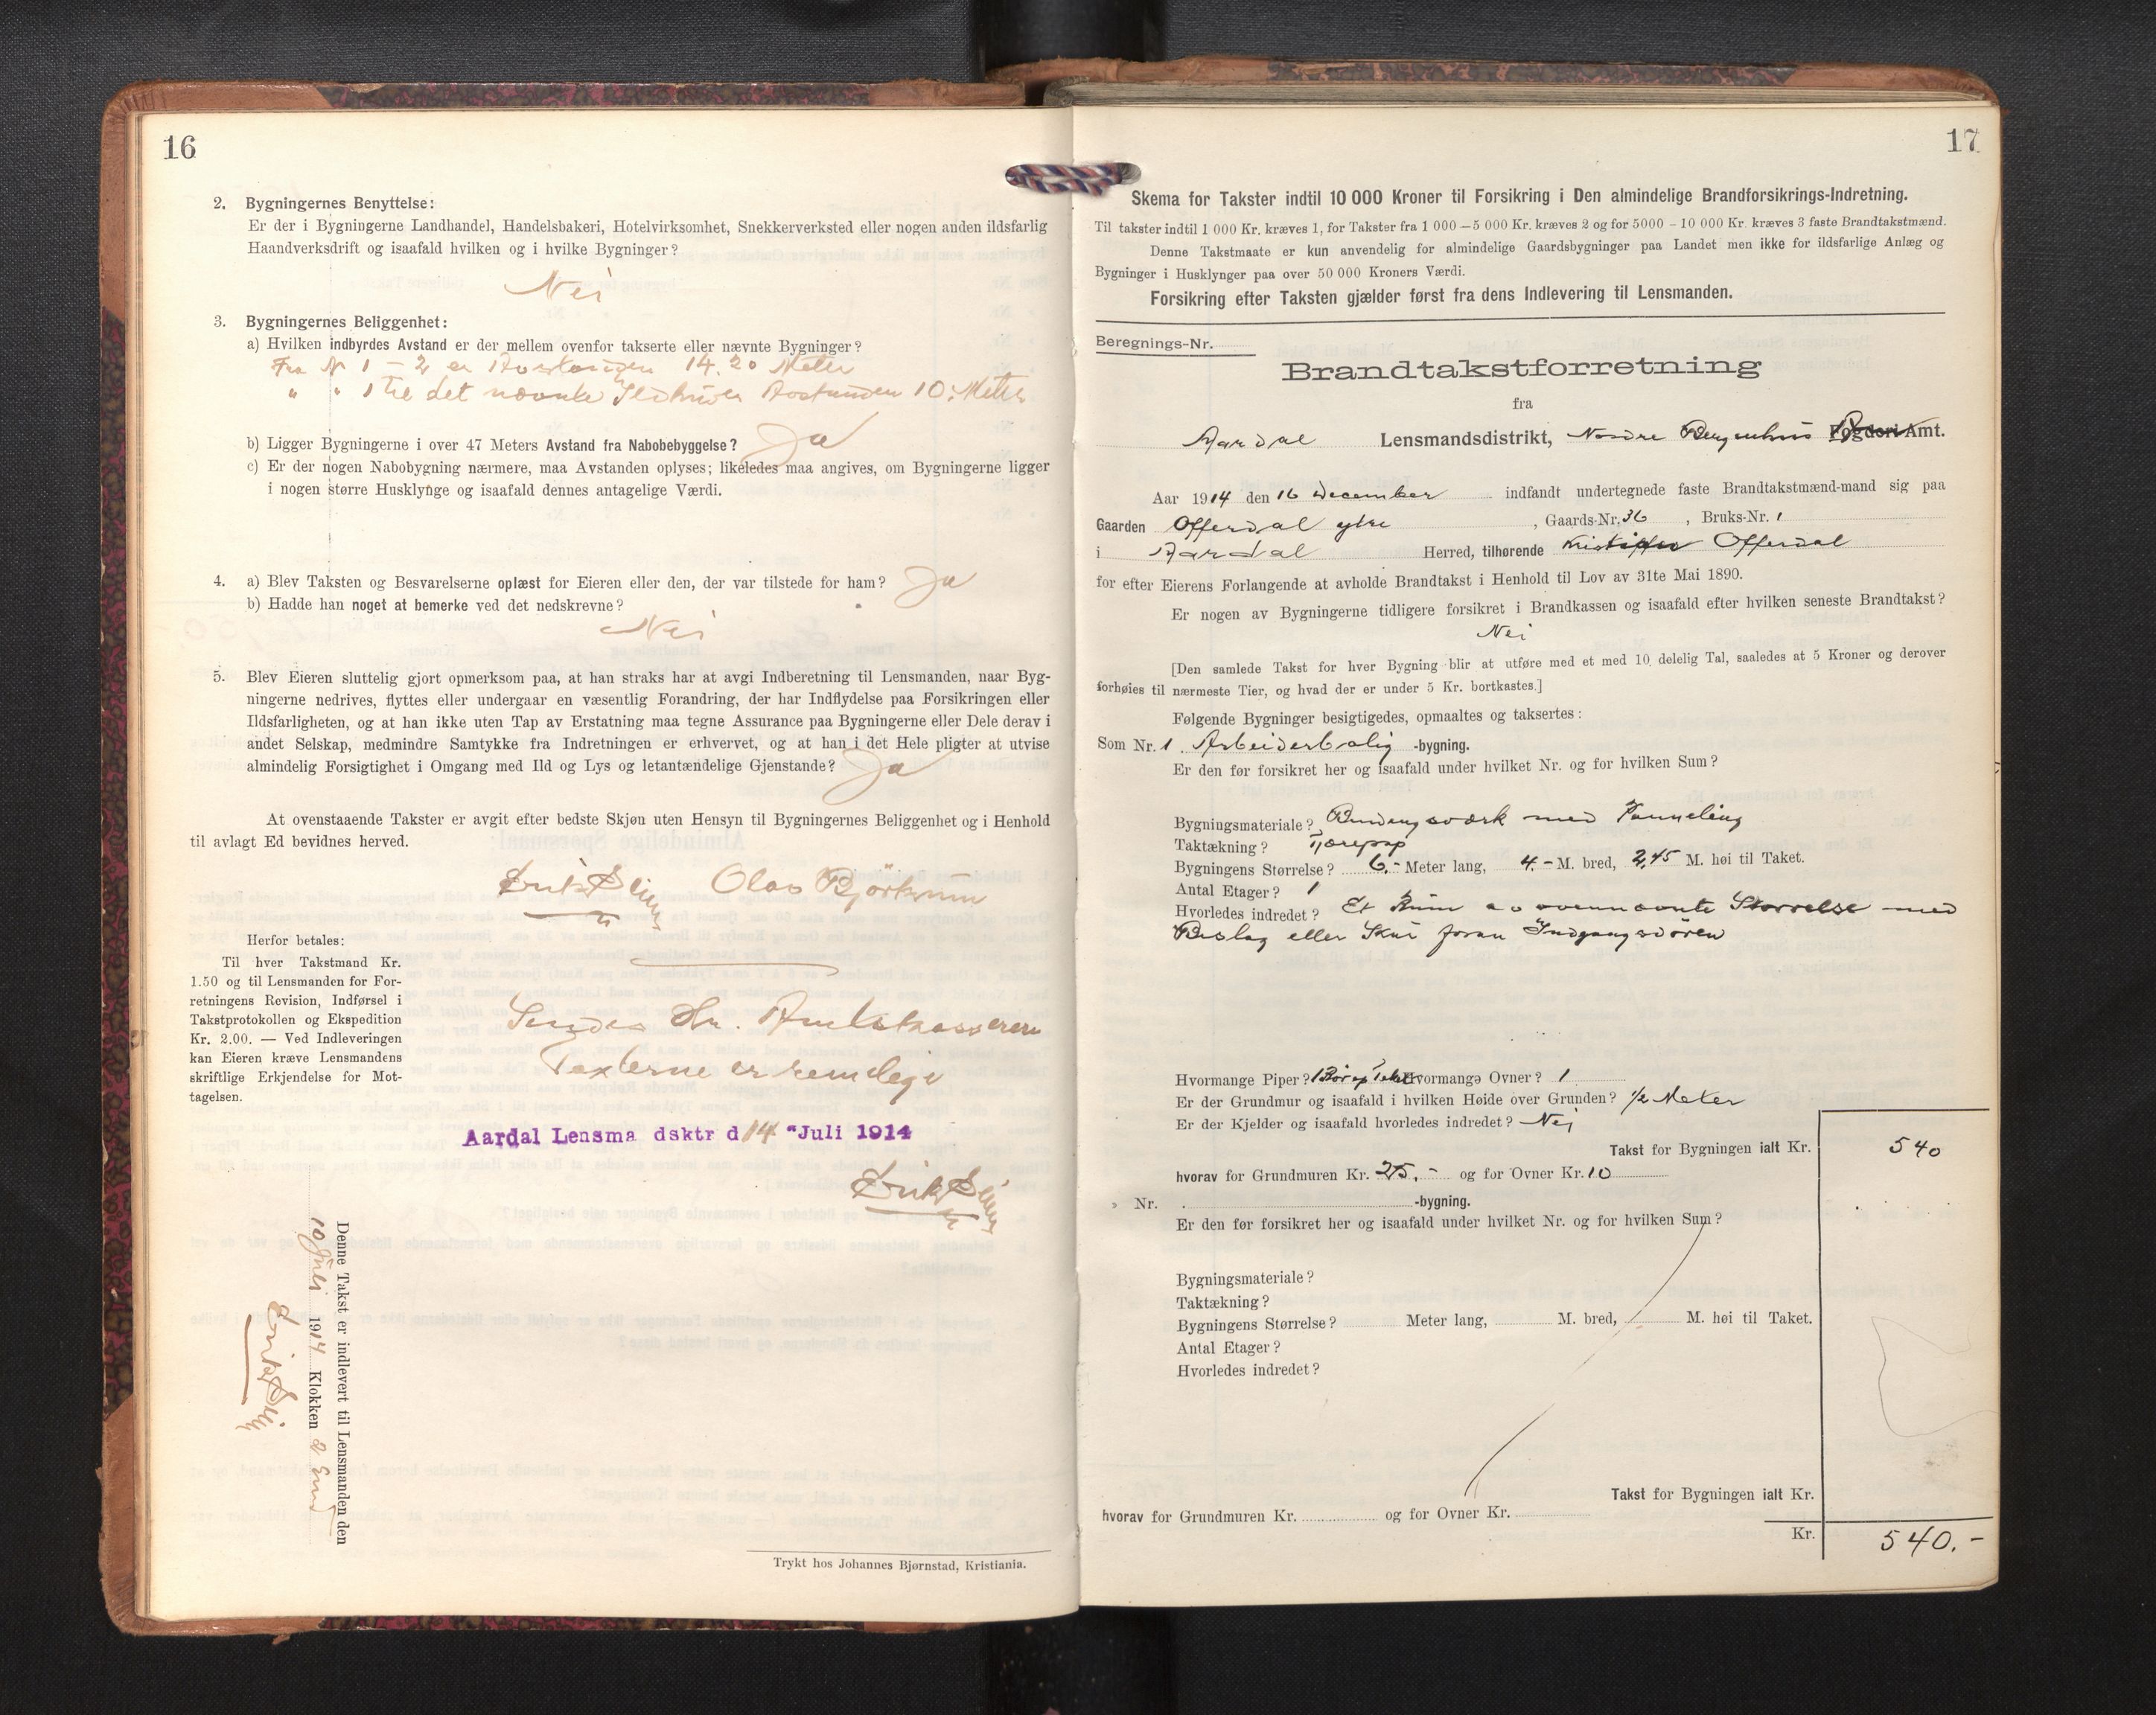 16
2. Bygningernes Benyttelse:
Er der i Bygningerne Landhandel, Handelsbakeri, Hotelvirksomhet, Snekkerverksted eller nogen anden ildsfarlig
Haandverksdrift og isaafald hvilken og i hvilke Bygninger?
Nei
3. Bygningernes Beliggenhet:
a) Hvilken indbyrdes Avstand er der mellem ovenfor takserte eller nævnte Bygninger?
Fra N 1 – 2 er Avstanden 14.20 Meter
" " 1 til det nævnte Ildhuset Avstanden 10.- Meter
b) Ligger Bygningerne i over 47 Meters Avstand fra Nabobebyggelse? Ja
c) Er der nogen Nabobygning nærmere, maa Avstanden oplyses; likeledes maa angives, om Bygningerne ligger
i nogen større Husklynge og isaafald dennes antagelige Værdi.
4. a) Blev Taksten og Besvarelserne oplæst for Eieren eller den, der var tilstede for ham? Ja
b) Hadde han noget at bemerke ved det nedskrevne?
Nei
5. Blev Eieren sluttelig gjort opmerksom paa, at han straks har at avgi Indberetning til Lensmanden, naar Byg-
ningerne nedrives, flyttes eller undergaar en væsentlig Forandring, der har Indflydelse paa Forsikringen eller
Ildsfarligheten, og at han ikke uten Tap av Erstatning maa tegne Assurance paa Bygningerne eller Dele derav i
andet Selskap, medmindre Samtykke fra Indretningen er erhvervet, og at han i det Hele pligter at utvise
almindelig Forsigtighet i Omgang med Ild og Lys og letantændelige Gjenstande? Ja
At ovenstaaende Takster er avgit efter bedste Skjøn uten Hensyn til Bygningernes Beliggenhet og i Henhold
til avlagt Ed bevidnes herved.
Olav Bjørkum
Herfor betales:
Til hver Takstmand Kr.
1.50 og til Lensmanden for For-
retningens Revision, Indførsel i
Takstprotokollen og Ekspedition
Kr. 2.00. — Ved Indleveringen
kan Eieren kræve Lensmandens
skriftlige Erkjendelse for Mot-
tagelsen.
Sendes Hr. Amtskasserern
Taxterne er remelige
Aardal Lensma dsktr d 14 "Juli 1914
Denne Takst er indlevert til Lensmanden den
10 Juli 1914 Klokken 2 Emd
Trykt hos Johannes Bjørnstad, Kristiania.
17
Skema for Takster indtil 10 000 Kroner til Forsikring i Den almindelige Brandforsikrings-Indretning.
Til takster indtil 1 000 Kr. kræves 1, for Takster fra 1 000 – 5 000 Kr. kræves 2 og for 5000 – 10 000 Kr. kræves 3 faste Brandtakstmænd.
Denne Takstmaate er kun anvendelig for almindelige Gaardsbygninger paa Landet men ikke for ildsfarlige Anlæg og
Bygninger i Husklynger paa over 50 000 Kroners Værdi.
Forsikring efter Taksten gjælder først fra dens Indlevering til Lensmanden.
Beregnings-Nr.
Brandtakstforretning
fra
Aardal Lensmandsdistrikt, Nordre Bergenhus Fogderi Amt.
Aar 1914 den 16 December indfandt undertegnede faste Brandtakstmænd-mand sig paa
Gaarden Offerdal ytre, Gaards-Nr. 36, Bruks-Nr. 1
i Aardal Herred, tilhørende Kristoffer Offerdal
for efter Eierens Forlangende at avholde Brandtakst i Henhold til Lov av 31te Mai 1890.
Er nogen av Bygningerne tidligere forsikret i Brandkassen og isaafald efter hvilken seneste Brandtakst?
Nei
[Den samlede Takst for hver Bygning blir at utføre med et med 10 delelig Tal, saaledes at 5 Kroner og derover
forhøies til nærmeste Tier, og hvad der er under 5 Kr. bortkastes.]
Følgende Bygninger besigtigedes, opmaaltes og taksertes:
Som Nr. 1. Arbeiderbolig -bygning.
Er den før forsikret her og isaafald under hvilket Nr. og for hvilken Sum?
Bygningsmateriale? Bindingsværk med Panneling
Taktækning? Tjærepap
Bygningens Størrelse? 6.- Meter lang, 4.- M. bred, 2,45 M. høi til Taket.
Antal Etager? 1
Hvorledes indredet? Et Rum av ovennævnte Størrelse med
Bislag eller Skur foran Indgangsdøren
Hvormange Piper? 1 Hvormange Ovner? 1
Er der Grundmur og isaafald i hvilken Høide over Grunden? 1/2 Meter
Er der Kjelder og isaafald hvorledes indredet? Nei
Takst for Bygningen ialt Kr. 540
hvorav for Grundmuren Kr. 25.- og for Ovner Kr. 10
» Nr. -bygning.
Er den før forsikret her og isaafald under hvilket Nr. og for hvilken Sum?
Bygningsmateriale?
Taktækning?
Bygningens Størrelse? Meter lang, M. bred, M. høi til Taket.
Antal Etager?
Hvorledes indredet?
Takst for Bygningen ialt Kr.
hvorav for Grundmuren Kr. og for Ovner Kr.
Kr. 540.-